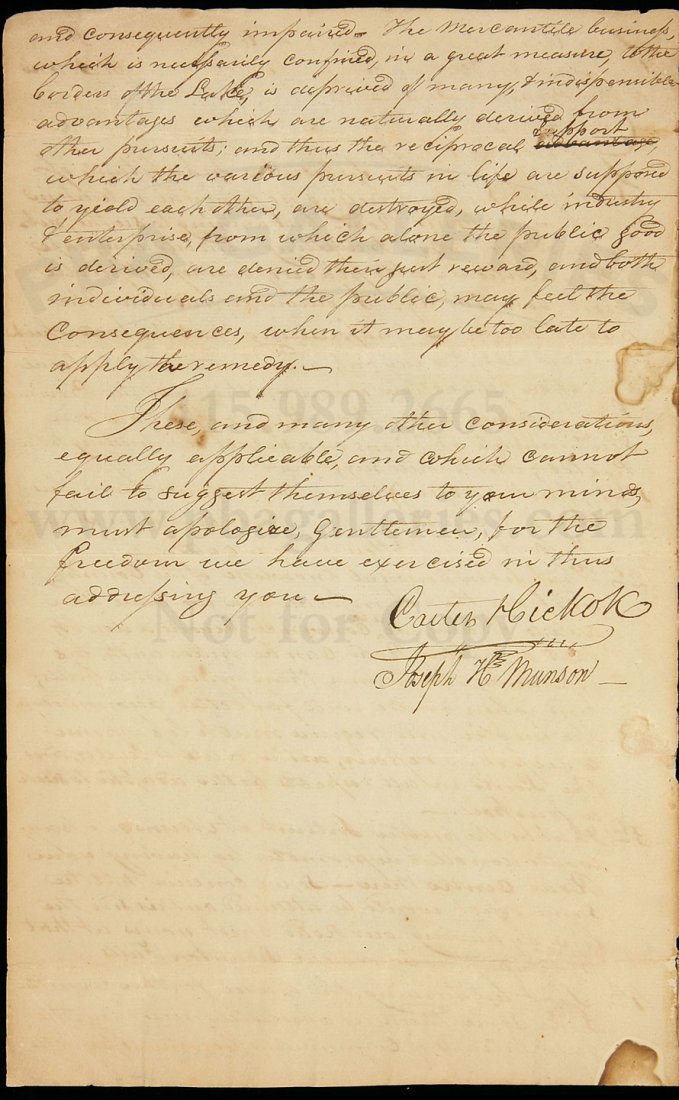 and consequently impaired. The Mercantile business,
which is necessarily confined, in a great measure, to the
borders of the Lake, is deprived of many, & indispensible
advantages which are naturally derived from
other pursuits; and thus the reciprocal support
which the various pursuits in life are supposed
to yield each other, are destroyed, while industry
& enterprise, from which alone the public good
is derived, are denied their just reward, and both
individuals and the public, may feel the
consequences, when it may be too late to
apply the remedy. —
These, and many other considerations,
equally applicable, and which cannot
fail to suggest themselves to your minds,
must apologize, Gentlemen, for the
freedom we have exercised in thus
addressing you —
Carter Hickok
Joseph H Munson —
415 989 2665
www.pbagalleries.com
Not for Copy